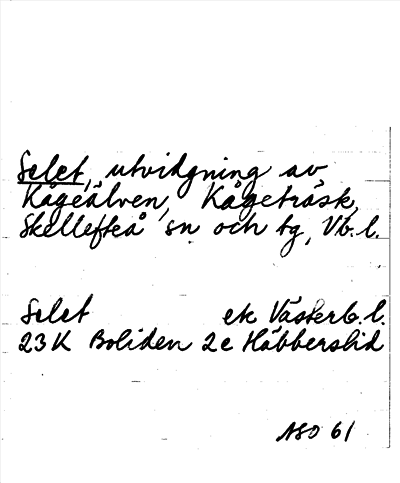 Selet, utvidgning av
Kågeälven, Kågeträsk,
Skellefteå sn och tg, Vb. l.
Selet ek Västerb. l.
23K Boliden 2c Häbberslid
ASO 61